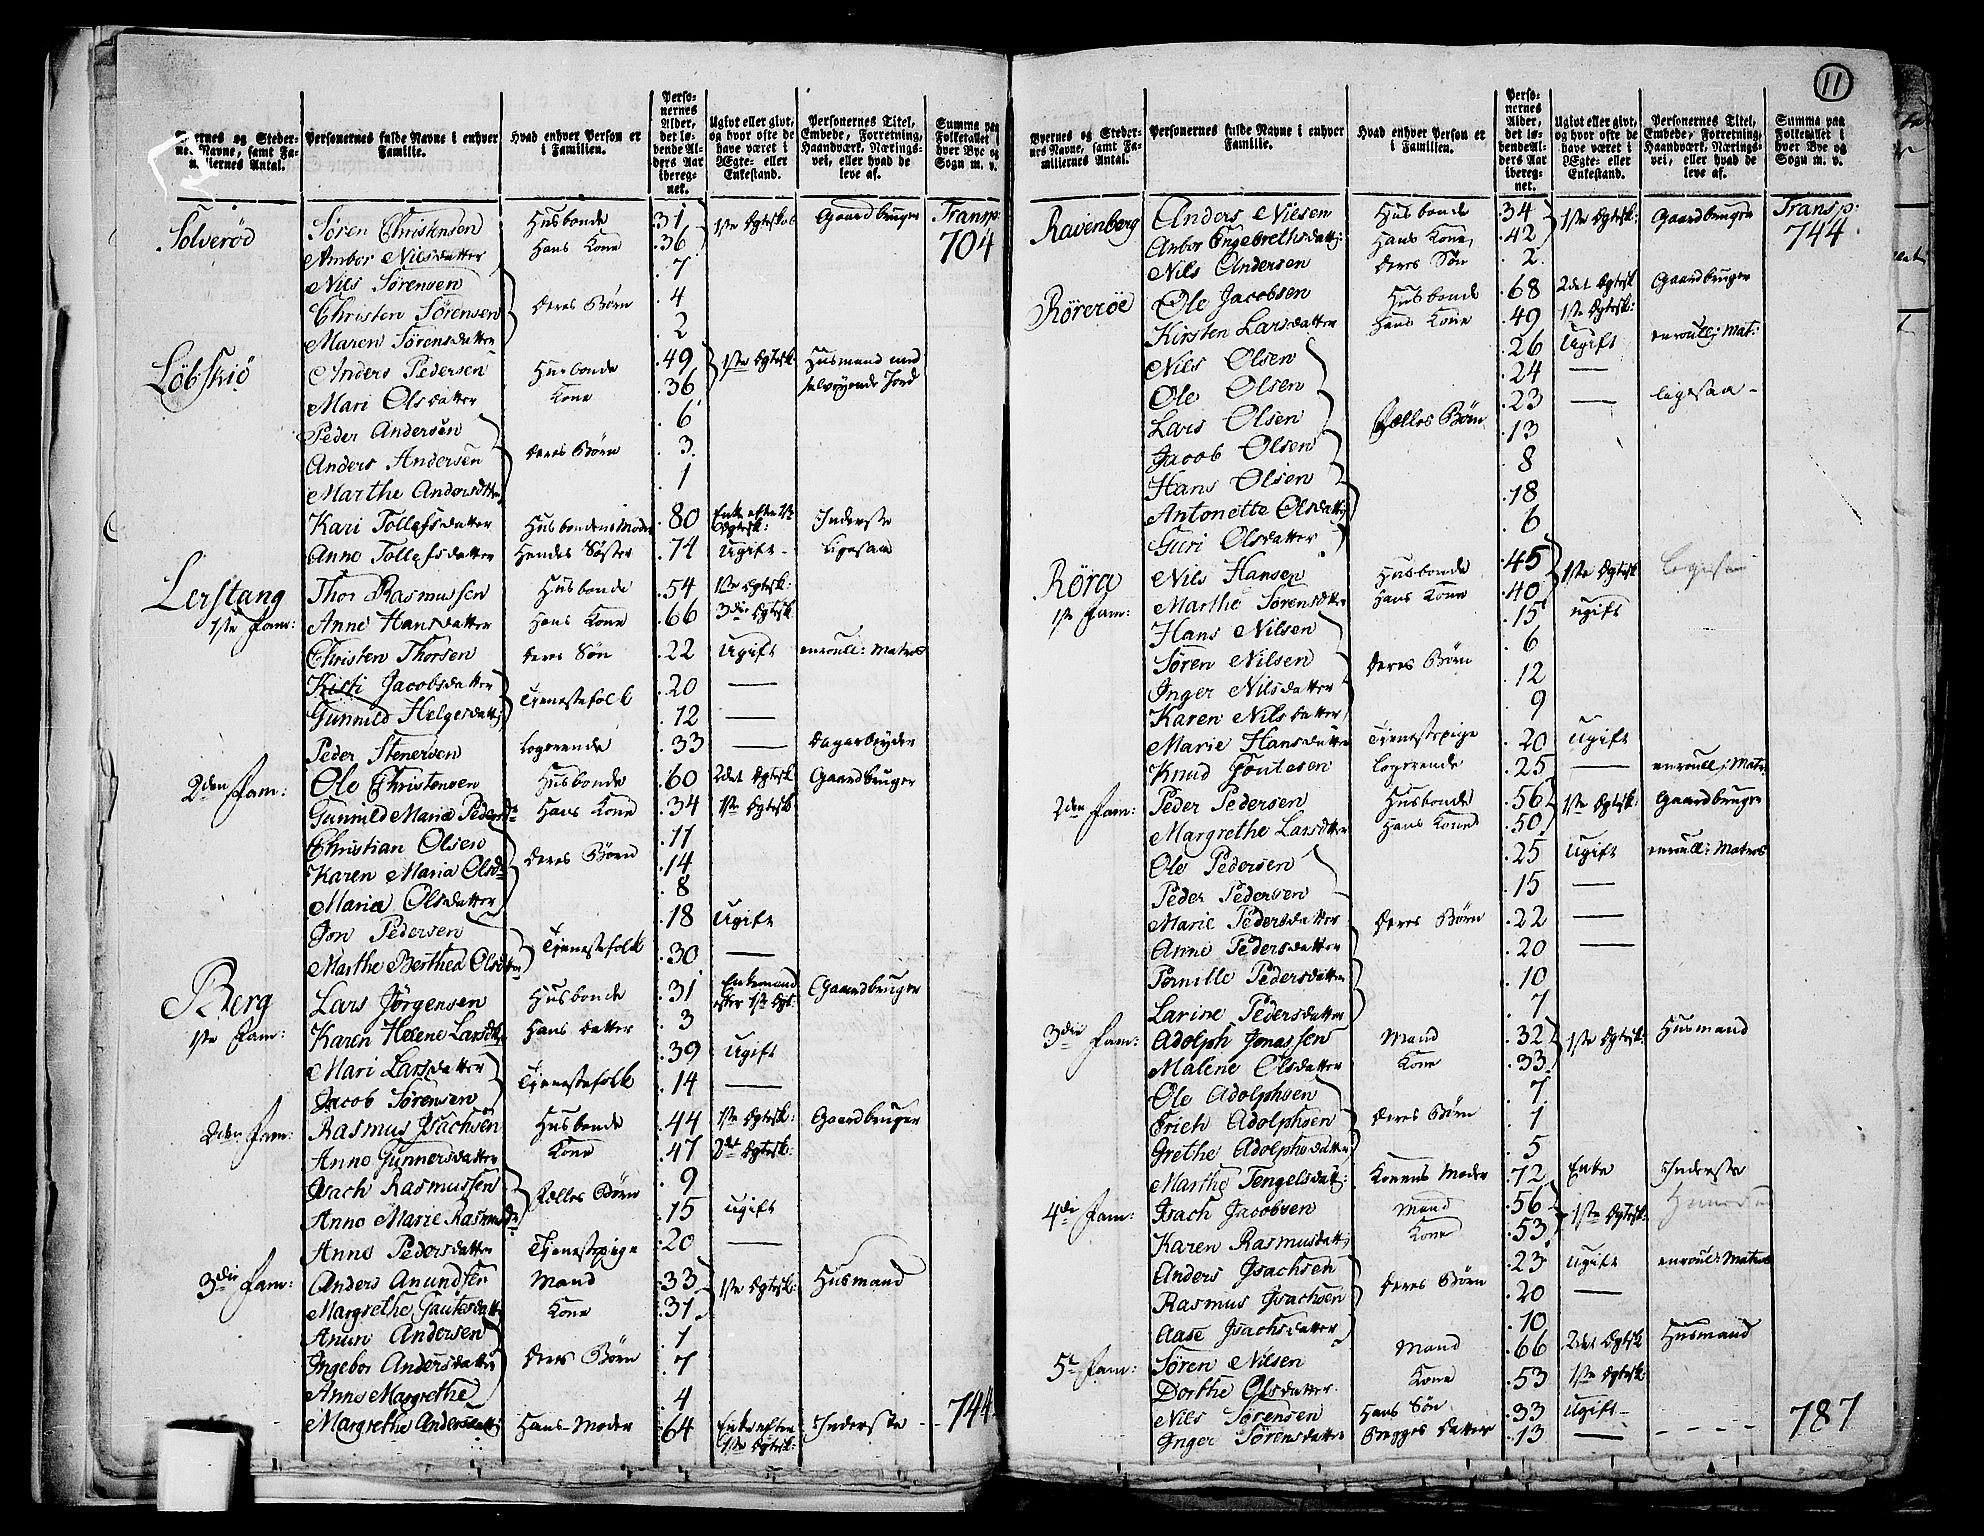 11
Byernes og Steder-nes Navne, samt Fa-miliernes Antal. Personernes fulde Navne i enhver Familie. Hvad enhver Person er i Familien. Perso-nernes Alder, det lø-bende Al-ders Aar ibereg-net. Ugivt eller givt, og hvor ofte de have været i Ægte- eller Enkestand. Personernes Titel, Embede, Forretning, Haandværk, Nærings-vei, eller hvad de leve af. Summa paa Folketallet i hver Bye og Sogn m. v.
Solverød Søren Christensen Husbonde 31 1ste Egtesk Gaardbruger Transp:
Ambor Nilsdatter Hans Kone 36 704
Nils Sørensen 7
Christen Sørensen Deres Børn 4
Maren Sørensdatter 2
Løbskiø Anders Pedersen Husbonde 49 1ste Egtesk Husmand med
Mari Olsdatter Kone 36 selveyende Jord
Peder Andersen 6
Anders Andersen Deres Børn 3
Marthe Andersdtter 1
Kari Tollefsdatter Husbondens Moder 80 Enke efter 1ste Egtesk: Inderste
Anne Tollefsdatter Hendes Søster 74 Ugift Ligesaa
Lerstang Thor Rasmussen Husbonde 54 1ste Egtesk:
1ste Fam: Anne Hansdatter Hans Kone 66 3die Egtesk
Christen Thorsen Deres Søn 22 Ugift enroull: Matros
Kisti Jacobsdatter Tjenestefolk 20 —
Gunnild Helgesdatt: 12 —
Peder Stenersen Logerende 33 — Dagarbeyder
2den Fam: Ole Christensen Husbonde 60 2det Egtesk Gaardbruger
Gunnild Maria Pedersdr Hans Kone 34 1ste Egtesk
Christian Olsen 11
Karen Maria Olsdr Deres Børn 14
Maria Olsdatter 8
Jon Pedersen Tjenestefolk 18 Ugift
Marthe Berthea Olsdtter 30 —
Berg Lars Jørgensen Husbonde 31 Enkemand efter 1ste Egt: Gaardbruger
1ste Fam: Karen Helene Larsdtr Hans Datter 3
Mari Larsdatter Tjenestefolk 39 Ugift
Jacob Sørensen 14 —
2den Fam: Rasmus Isachsen Husbonde 44 1ste Egtesk: Gaardbruger
Anne Gunnersdatter Kone 47 2det Egtesk:
Isach Rasmussen Fælles Børn 9
Anne Marie Rasmusdr 15 Ugift
Anne Pedersdatter Tjenestepige 20 —
3die Fam: Anders Anundsen Mand 33 1ste Egtesk: Husmand
Margrethe Gautesdatter Kone 31
Anun Andersen 1
Ingebor Andersdatter Deres Børn 7
Anne Margrethe 4
Margrethe Andersdatt: Hans Moder 64 Enke efter 1ste Egtesk: Inderste 744
Byernes og Steder-nes Navne, samt Fa-miliernes Antal. Personernes fulde Navne i enhver Familie. Hvad enhver Person er i Familien. Perso-nernes Alder, det lø-bende Al-ders Aar ibereg-net. Ugivt eller givt, og hvor ofte de have været i Ægte- eller Enkestand. Personernes Titel, Embede, Forretning, Haandværk, Nærings-vei, eller hvad de leve af. Summa paa Folketallet i hver Bye og Sogn m. v.
Ravenberg Anders Nilsen Husbonde 34 1ste Egtesk: Gaardbruger Transp:
Anbor Engebrethsdatt: Hans Kone 42 744
Nils Andersen Deres Søn 2
Röreröe Ole Jacobsen Husbonde 68 2det Egtesk Gaardbruger
Kirsten Larsdatter Hans Kone 49 1ste Egtesk:
Nils Olsen 26 Ugift enroull: Mat:
Ole Olsen 24 —
Lars Olsen Fælles Børn 23 — ligesaa
Jacob Olsen 13
Hans Olsen 8
Antonette Olsdatt: 18
Guri Olsdatter 6
Röra Nils Hansen Husbonde 45 1ste Egtesk Ligesaa
1ste Fam: Marthe Sørensdatter Hans Kone 40
Hans Nilsen 15 Ugift
Søren Nilsen Deres Børn 6
Inger Nilsdatter 12
Karen Nilsdatter 9
Marie Hansdatter Tjenestepige 20 Ugift
Knud Toutesen Logerende 25 — enroull: Matr:
2den Fam: Peder Pedersen Husbonde 56 1ste Egtesk: Gaardbruger
Margrethe Larsdtter Hans Kone 50
Ole Pedersen 25 Ugift enroull: Matros
Peder Pedersen 15 —
Marie Pedersdatter Deres Børn 22 —
Anne Pedersdatter 20 —
Pernille Pedersdatter 10
Larine Pedersdatter 7
3die Fam: Adolph Jonassen Mand 32 1ste Egtesk: Husmand
Malene Olsdatter Kone 33
Ole Adolphsen 7
Erich Adolphsen Deres Børn 1
Grethe Adolphsdatter 5
Marthe Tengelsdatt: Konens Moder 72 Enke Inderste
4de Fam: Isach Jacobsen Mand 56 1ste Egtesk: Husmand
Karen Rasmusdatt: Kone 53
Anders Isachsen 23 Ugift enroul: Matros
Rasmus Isachsen Deres Børn 20 —
Aase Isachsdatter 10
5te Fam: Søren Nilsen Mand 66 2det Egtesk Husmand
Dorthe Olsdatter Kone 53 1ste Egtesk:
Nils Sørensen Hans Søn 33 Ugift
Inger Sørensdatter Begges Datter 13 — 787